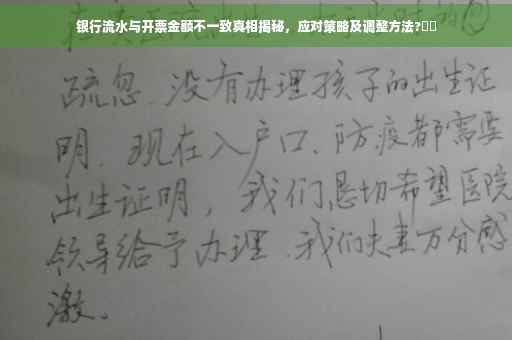 银行流水与开票金额不一致真相揭秘，应对策略及调整方法?
疏忽、没有办理孩子的出生证
明、现在入户口、防疫都需要
出生证明，我们恳切希望医院
领导给予办理、我们夫妻万分感
激。